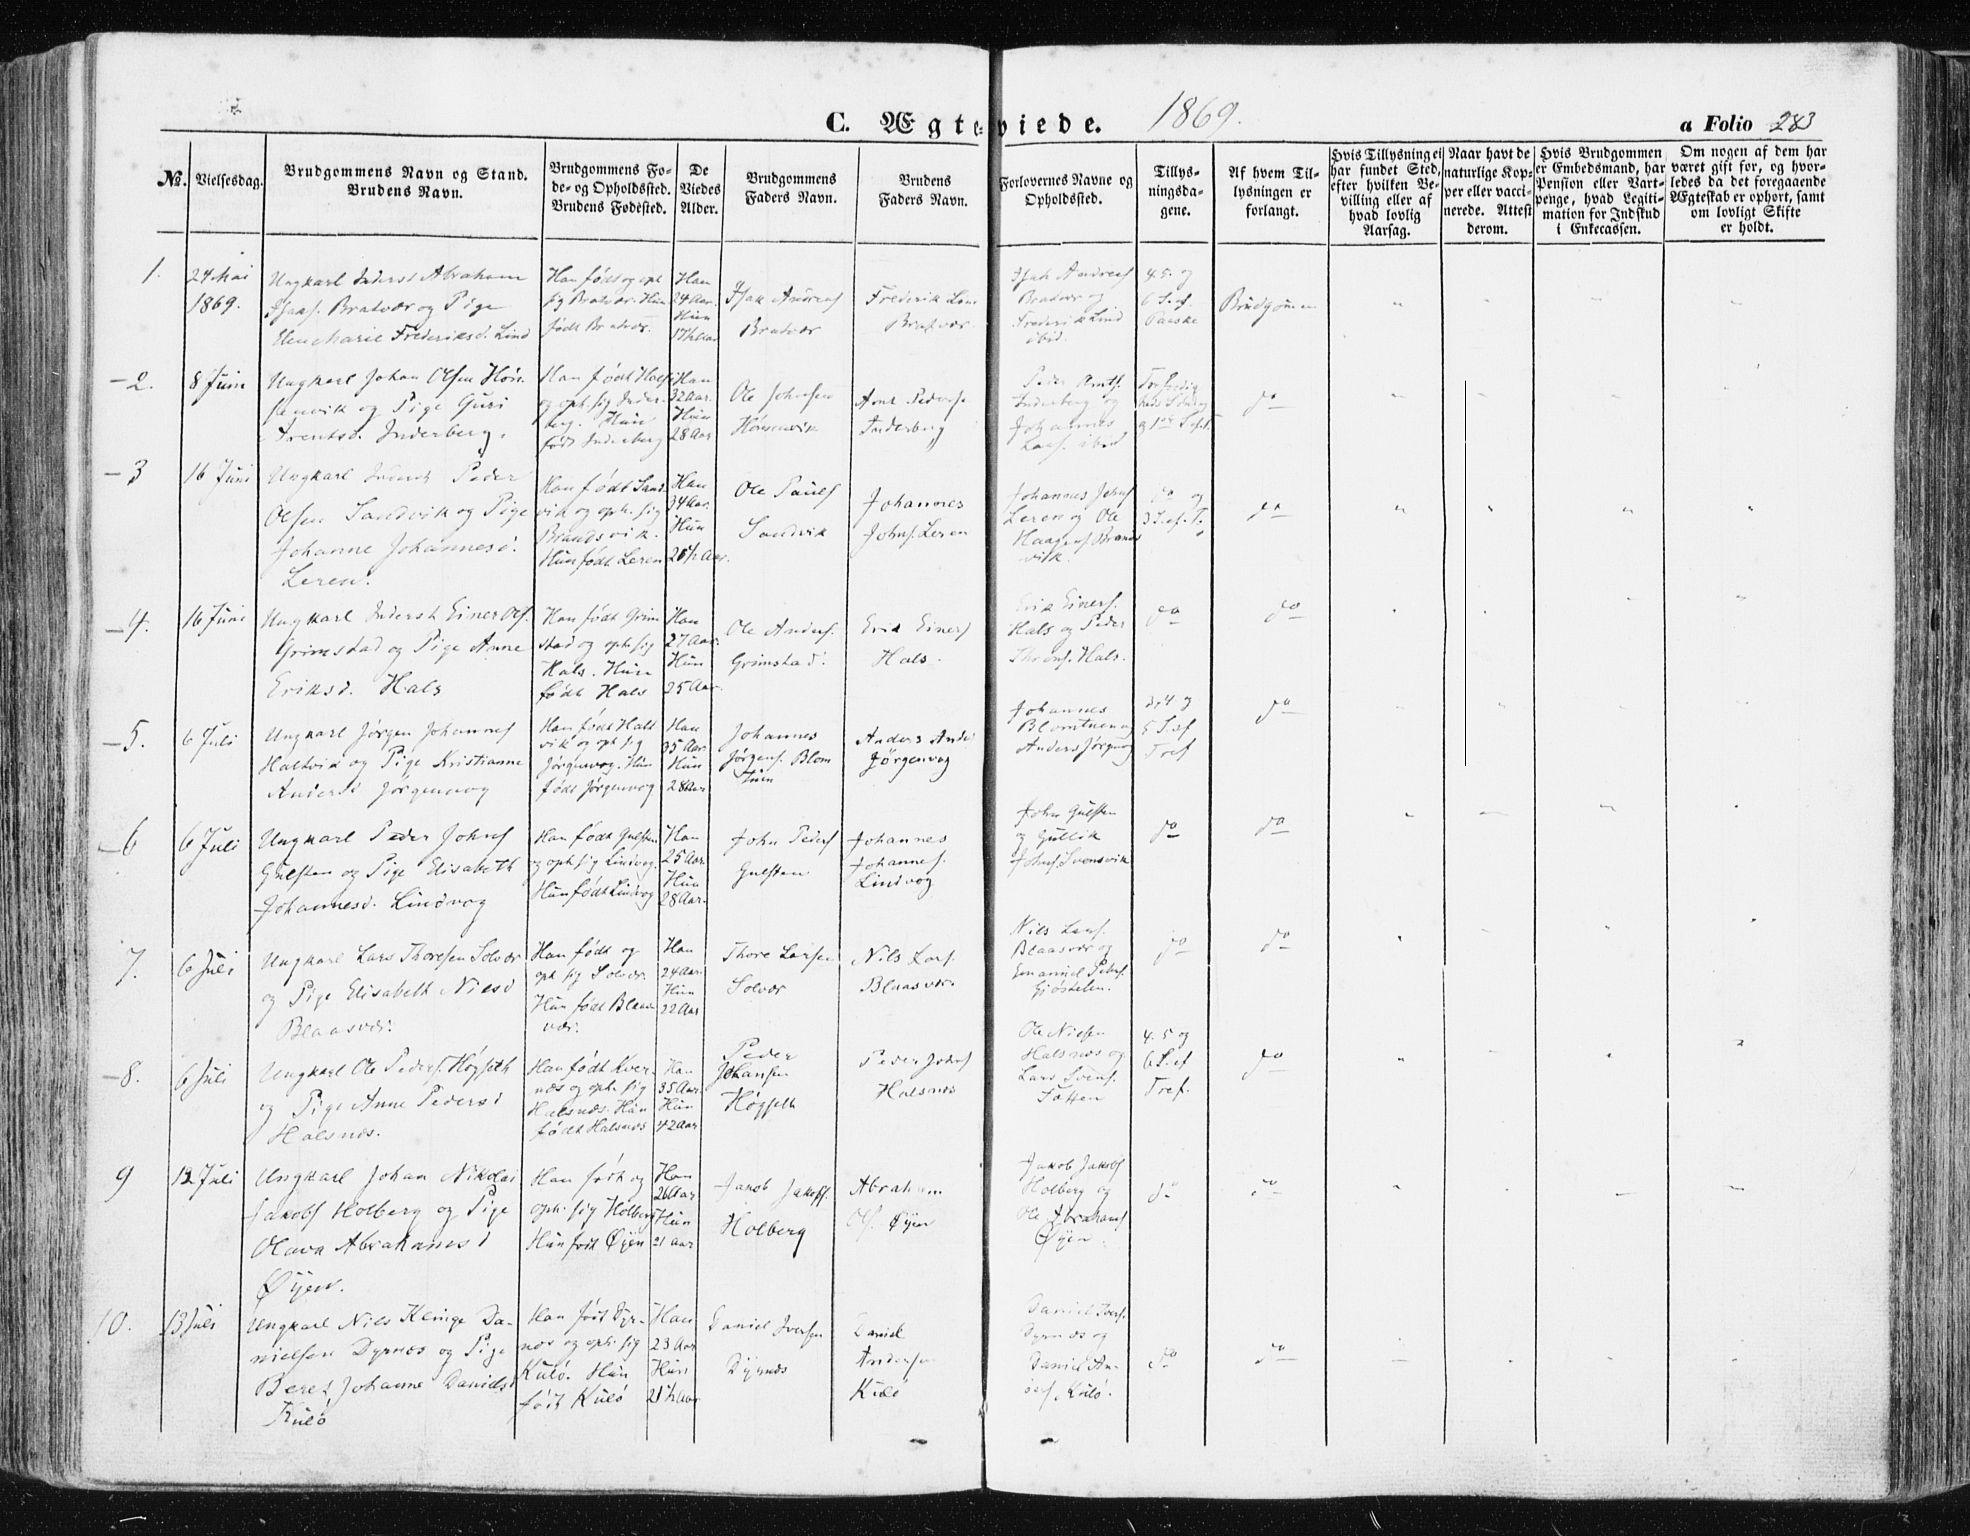 C. Ægteviede. 1869. a Folio 283
No. Vielsesdag. Brudgommens Navn og Stand. Brudens Navn. Brudgommens Føde- og Opholdssted. Brudens Fødested. De Viedes Alder. Brudgommens Faders Navn. Brudens Faders Navn. Forlovernes Navne og Opholdssted. Tillysningsdagene. Af hvem Tillysningen er forlangt. Hvis Tillysning ei har fundet Sted, efter hvilken Bevilling eller af hvad lovlig Aarsag. Naar havt de naturlige Kopper eller vaccinerede. Attest derom. Hvis Brudgommen er Embedsmand, har Pension eller Vartpenge, hvad Legitimation for Indskud i Enkecassen. Om nogen af dem har været gift før, og hvorledes da det foregaaende Ægteskab er ophørt, samt om lovligt Skifte er holdt.
1. 24 Mai 1869.
Ungkarl Inderst Abraham
Isaks. Bratvær og Pige
Elen Marie Frederiksd. Lind
Han født og oph
sig Bratvær. Hun
født Bratvær.
Han
24 Aar.
Hun
17½ Aar
Isak Andreas
Bratvær
Frederik Lin
Bratvær.
Isak Andreas
Bratvær og
Frederik Lind
ibid.
4. 5. og
6 S. ef.
Paaske
Brudgomen
2. 8 Juni
Ungkarl Johan Olsen Høn-
senvik og Pige Guri
Arentsd. Inderberg.
Han født
og oph. sig Inder-
berg. Hun
født Inderberg
Han
32 Aar.
Hun
28 Aar
Ole Johnsen
Hønsenvik
Arnt Peders
Inderberg
Peder Arnts.
Inderberg og
Johannes
Lars. ibid
do
3 16 Juni
Ungkarl Inderst Peder
Olsen Sandvik og Pige
Johanne Johannesd.
Leren.
Han født Sand-
vik og oph. sig
Brandsvik.
Hun født Leren
Han
34 Aar.
Hun
26½ Aar.
Ole Pauls
Sandvik
Johannes
Johns. Leren
Johannes Johns
Leren og Ole
Haagens. Brands
vik.
do og
3 S. ef. T.
do
4. 16 Juni
Ungkarl Inderst Einer Ols.
Grimstad og Pige Anne
Eriksd. Hals
Han født Grim
stad og oph. sig
Hals. Hun
født Hals
Han
27 Aar.
Hun
25 Aar.
Ole Anders.
Grimstad.
Erik Einers
Hals.
Erik Einers.
Hals og Peder
Throns. Hals.
do
do
5. 6 Juli
Ungkarl Jørgen Johannes
Haltvik og Pige Kristianne
Andersd Jørgenvog
Han født Halt
vik og oph sig
Jørgenvog. Hun
født Jørgenvog
Han
35 Aar
Hun
28 Aar
Johannes
Jørgens. Blom
tuen
Anders Ander
Jørgenvog
Johannes
Blomtuen og
Anders Jørgenvog
3, 4 og
5 S. ef
Tref
do
6 6 Juli
Ungkarl Peder Johns
Gulsten og Pige Elisabeth
Johannesd. Lindvog
Han født Gulsten
og oph sig Lindvog.
Hun født Lindvog
Han
25 Aar.
Hun
28 Aar.
John Peders
Gulsten
Johannes
Johannes.
Lindvog
John Gulsten
og Gullik
Johns. Svensvik
do
do
7. 6 Juli
Ungkarl Lars Thoresen Solvær
og Pige Elisabeth Nilsd
Blaasvær.
Han født og
oph sig Solvær.
Hun født Blaas
vær.
Han
24 Aar.
Hun
22 Aar
Thore Larsen
Solvær
Nils Lars.
Blaasvær
Nils Lars.
Blaasvær og
Emanuel Peters.
do
do
8. 6 Juli
Ungkarl Ole Peders. Høgseth
og Pige Anne Pedersd
Halsnæs.
Han født Kver-
næs og oph. sig
Halsnæs. Hun
født Halsnæs
Han
35 Aar
Hun
42 Aar
Peder
Johansen
Høgseth
Peder
Halsnæs
Ole Nielsen
Halsnæs og
Lars Svens.
4. 5 og
6 S. ef
Tref.
do
9 12 Juli
Ungkarl Johan Nikolai
Jakobs Holberg og Pige
Olava Abrahamsd
Øyen.
Han født og
oph. sig Holberg
Hun født Øyen
Han
26 Aar
Hun
21 aar
Jakob Jakobs.
Holberg
Abraham
Ols. Øyen
Jakob Jakobs
Holberg og
Ole Abrahams
Øyen
do
do
10. 13 Juli
Ungkarl Nils Klinge Da-
nielsen Dyrnæs og Pige
Beret Johanne Danielsd
Kulø
Han født Dyr-
næs og oph. sig
Kulø. Hun
født Kulø
Han
23 Aar
Hun
21½ Aar
Daniel Iversen
Dyrnæs
Daniel
Andersen
Kulø
Daniel Ivers.
Dyrnæs og
Daniel An-
ders. Kulø.
do
do